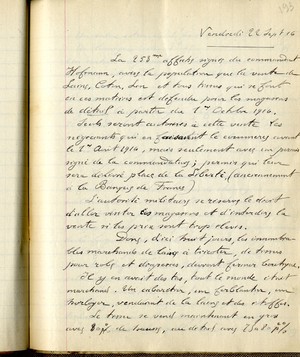 Vendredi 22 Sept 16
La 258me affiche signée du commandant
Hofmann, avise la population que la vente de
Laine, Coton, Lin et tous tissus qui se font
en ces matières est défendue pour les magasins
de détail à partir du 1er Octobre 1916.
Seuls seront autorisés à cette vente les
négociants qui en faisaient le commerce avant
le 1er Août 1914, mais seulement avec un permis
signé de la commandature; permis qui leur
sera délivré place de la Liberté, (anciennement
à la Banque de France)
L'autorité militaire se réserve le droit
d'aller visiter ces magasins et d'interdire la
vente si les prix sont trop élevés.
Donc, d'ici huit jours, les innombra-
bles marchands de laine à tricoter, de tissus
pour robes et doublures, devront fermer boutique.
Il y en avait des tas, tout le monde était
marchand. Un cabaretier, un ferblantier, un
horloger, vendaient de la laine et des étoffes.